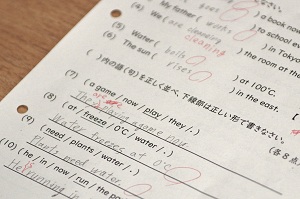 (4) My father ( works ) a book now
(are cleaning ) to school ev
(5) Water ( boils cleaning ) in Tokyo
(6) The sun ( rises ) the room at the
) at 100℃.
) in the east.
( )内の語(句)を正しく並べ、下線部は正しい形で書きなさい。
(各8点
(7) ( a game / now / play / they / . )
The game now.
(8) ( at / freeze / 0℃ / water / . )
Water freezes at 0℃
(9) ( need / plants / water / . )
Plants need water.
(10) ( he / in / now / run / the pa
He is running in